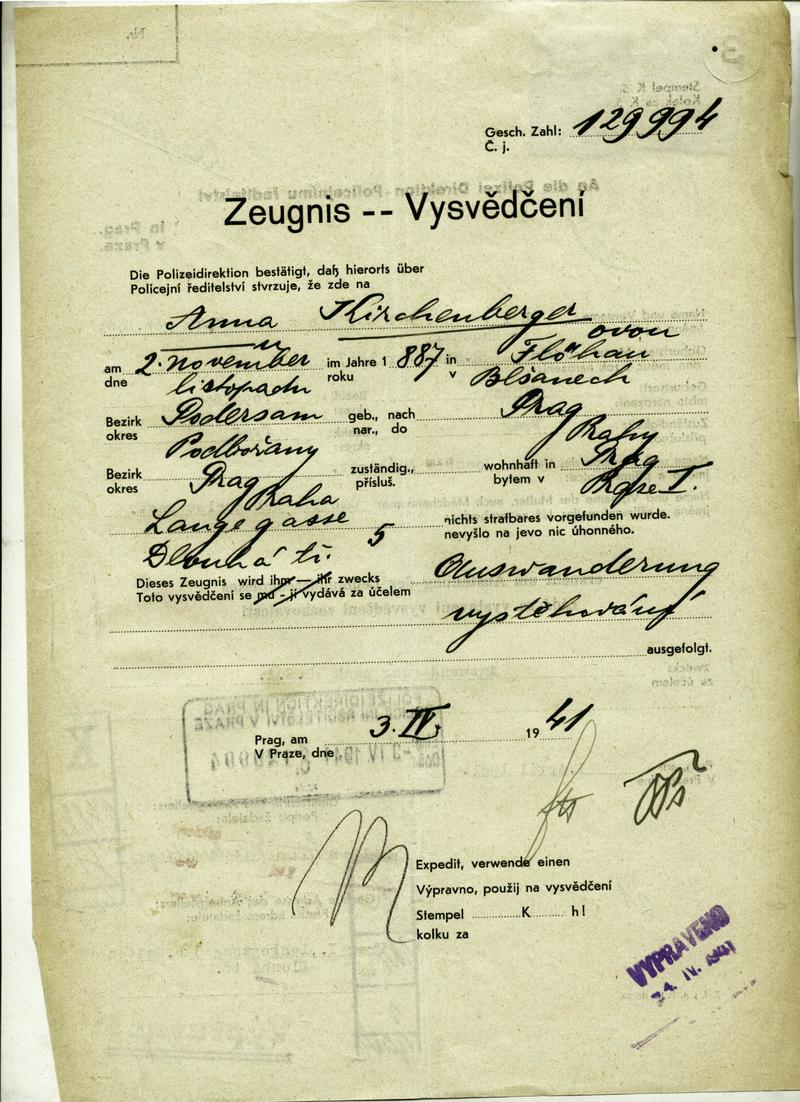 Nr.
Gesch. Zahl: 129994
Č. j.
Zeugnis -- Vysvědčení
Die Polizeidirektion bestätigt, daß hierorts über
Policejní ředitelství stvrzuje, že zde na
Anna Kirchenberger
ovou
am 2. November im Jahre 1 887 in Flöhau
dne listopadu roku v Blšanech
Bezirk Podersam geb., nach Prag
okres Podbořany nar., do Prahy
Bezirk Prag zuständig., wohnhaft in Prag
okres Praha přísluš. bytem v Praze I.
Langegasse nichts strafbares vorgefunden wurde.
5 nevyšlo na jevo nic úhonného.
Dlouhá tř.
Dieses Zeugnis wird ihm — ihr zwecks Auswanderung
Toto vysvědčení se mu - jí vydává za účelem
vystěhování
ausgefolgt.
Prag, am 3. IV. 19 41
V Praze, dne
Expedit, verwende einen
Výpravno, použij na vysvědčení
Stempel K h!
kolku za
VYPRAVENO
IV. 1941